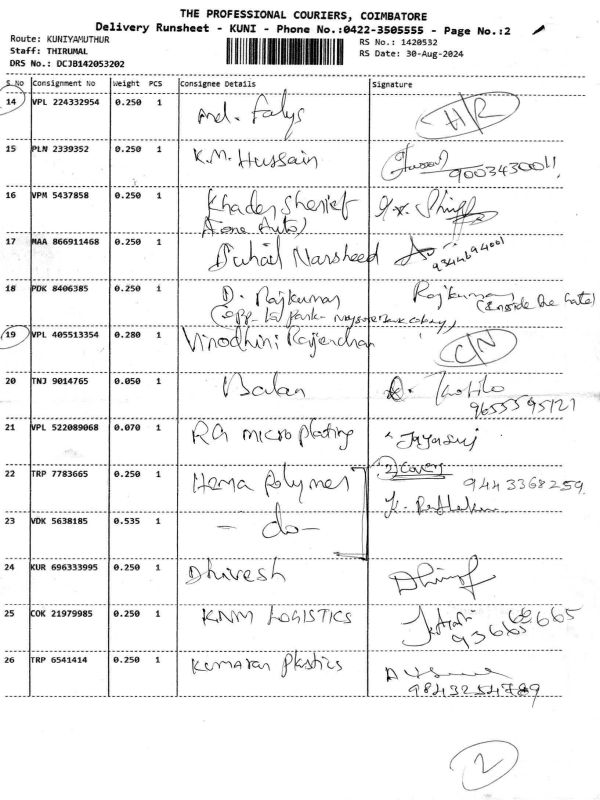 THE PROFESSIONAL COURIERS, COIMBATORE
Delivery Runsheet - KUNI - Phone No.:0422-3505555 - Page No.:2
Route: KUNIYAMUTHUR
Staff: THIRUMAL
DRS No.: DCJB142053202
RS No.: 1420532
RS Date: 30-Aug-2024
S No Consignment No Weight PCS Consignee Details Signature
14 VPL 224332954 0.250 1 Md.
15 PLN 2339352 0.250 1 K.M. Hussain 9003430011
16 VPM 5437858 0.250 1 Khader Sherief
17 MAA 866911468 0.250 1 Suhail Narsheed
18 PDK 8406385 0.250 1 D. Rajkumar Rajkumar
19 VPL 405513354 0.280 1 Vinodhini Rajendran C/N
20 TNJ 9014765 0.050 1 Balan
21 VPL 522089068 0.070 1 RG micro plating Jayasuj
22 TRP 7783665 0.250 1 Hema Polymer 2 Covers
9443368259
23 VDK 5638185 0.535 1 - do -
24 KUR 696333995 0.250 1 Dhivesh
25 COK 21979985 0.250 1 KNM LOGISTICS
26 TRP 6541414 0.250 1 Kumaran Plastics
9843254789
2